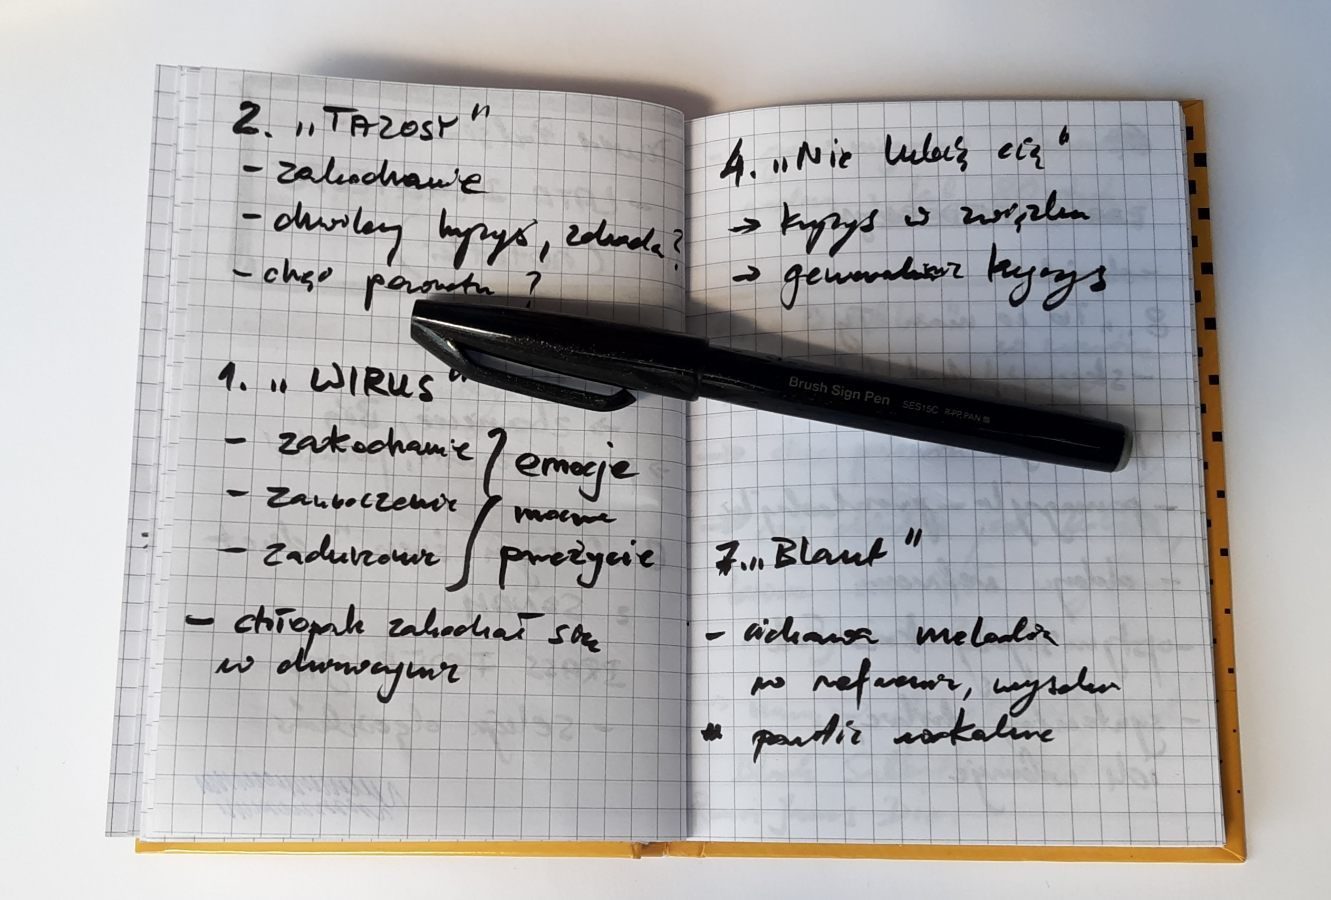 2. „TAZOSY"
- zakochanie
- chwilowy kryzys, zdrada?
- chęć powrotu ?
1. „WIRUS"
- zakochanie
- zauroczenie
- zadurzenie
emocje
mocne
przeżycie
- chłopak zakochał się
w dziewczynie
4. „Nie lubię cię"
→ kryzys w związku
→ generalnie kryzys
Brush Sign Pen SES15C
7. „Blant"
- ciekawa melodia
w refrenie, wysokie
partie wokalne